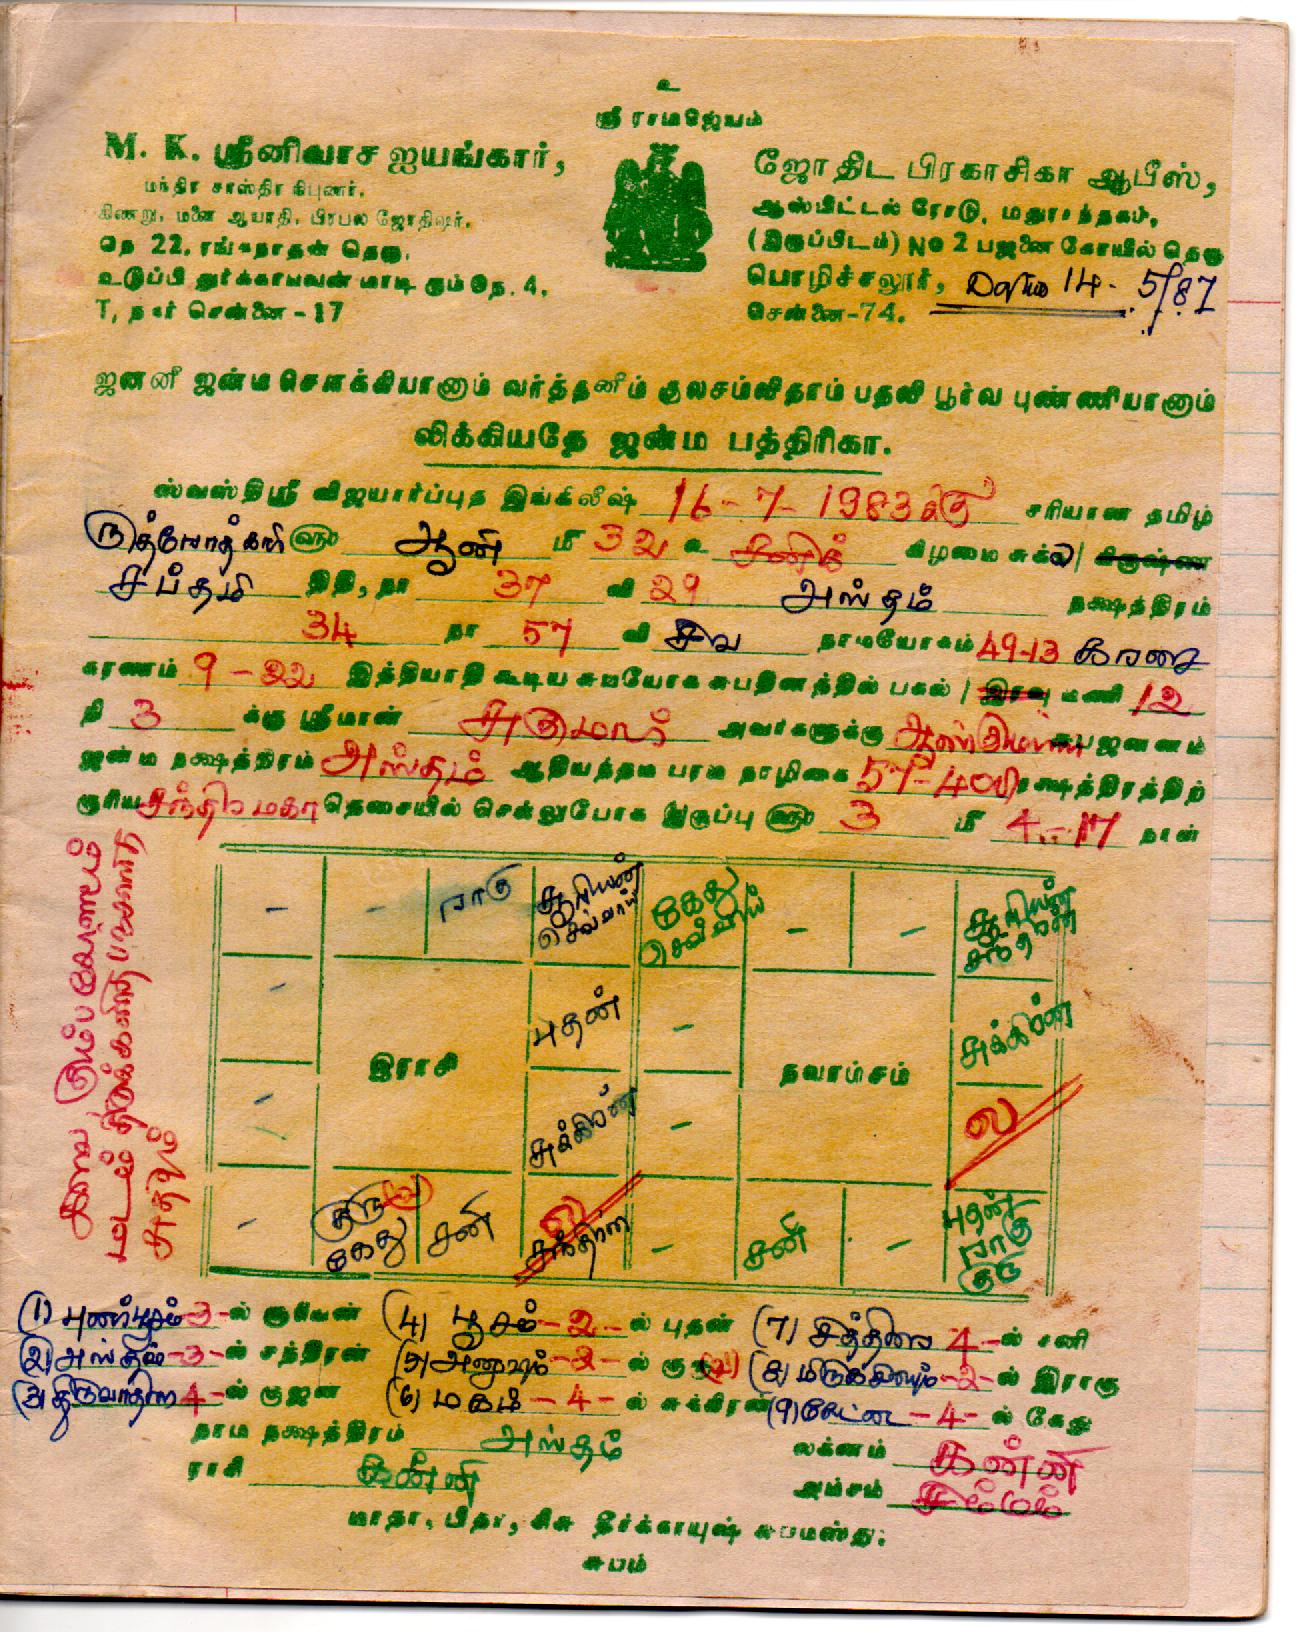 உ
ஸ்ரீ ராமஜெயம்
M. K. ஸ்ரீனிவாச ஐயங்கார்,
மந்திர சாஸ்திர நிபுணர்.
கிணறு, மனை ஆயாதி, பிரபல ஜோதிஷர்.
நெ 22, ரங்கநாதன் தெரு,
உடுப்பி மாடி ரூம் நெ. 4,
T, நகர் சென்னை - 17
ஜோதிட பிரகாசிகா ஆபீஸ்,
ஆஸ்பிட்டல் ரோடு, மதுராந்தகம்,
(இருப்பிடம்) No 2 பஜனை கோயில் தெரு
பொழிச்சலூர், 14-5/87
சென்னை-74.
ஜனனீ ஜன்ம சௌக்கியானும் வர்த்தனீம் குலசம்விதாம் பதவி பூர்வ புண்ணியானும்
லிக்கியதே ஜன்ம பத்திரிகா.
ஸ்வஸ்திஸ்ரீ விஜயார்ப்புத இங்கிலீஷ் 16-7-1983 க்கு சரியான தமிழ்
ஆனி மீ 32 உ சனிக் கிழமை சுக்ல / கிருஷ்ண
சப்தமி திதி, நா 37 வி 29 அஸ்தம் நக்ஷத்திரம்
34 நா 57 வி சிவ நாமயோகம் 49-13 கரஜை
கரணம் 9-22 இத்தியாதி கூடிய சுபயோக சுபதினத்தில் பகல் / இரவு மணி 12
நி 3 க்கு ஸ்ரீமான் சுகுமார் அவர்களுக்கு ஆண் சுபஜனனம்
ஜன்ம நக்ஷத்திரம் அஸ்தம் ஆதியந்தம் பரம நாழிகை 57-40 நக்ஷத்திரத்திற்
குரிய சந்திர மகா தெசையில் சென்றுபோக இருப்பு ௵ 3 மீ 4-17 நாள்
- - ராகு சூரியன் செவ்வாய் கேது செவ்வாய் - - சூரியன் சந்திரன்
- புதன் - சுக்கிரன்
இராசி நவாம்சம்
- சுக்கிரன் - ல
- குரு (வ) கேது சனி ல சந்திரன் - சனி - புதன் ராகு குரு
(1) புனர்பூசம்-3-ல் சூரியன் (4) பூசம்-2-ல் புதன் (7) சித்திரை 4-ல் சனி
(2) அஸ்தம்-3-ல் சந்திரன் (5) அனுஷம்-2-ல் குரு (வ) (8) மிருகசீரிஷம்-2-ல் இராகு
(3) திருவாதிரை 4-ல் குஜன் (6) மகம்-4-ல் சுக்கிரன் (9) கேட்டை-4-ல் கேது
நாம நக்ஷத்திரம் அஸ்தம் லக்னம் கன்னி
ராசி கன்னி அம்சம் சிம்மம்
மாதா, பிதா, சிசு தீர்க்காயுஷ் சுபமஸ்து:
சுபம்